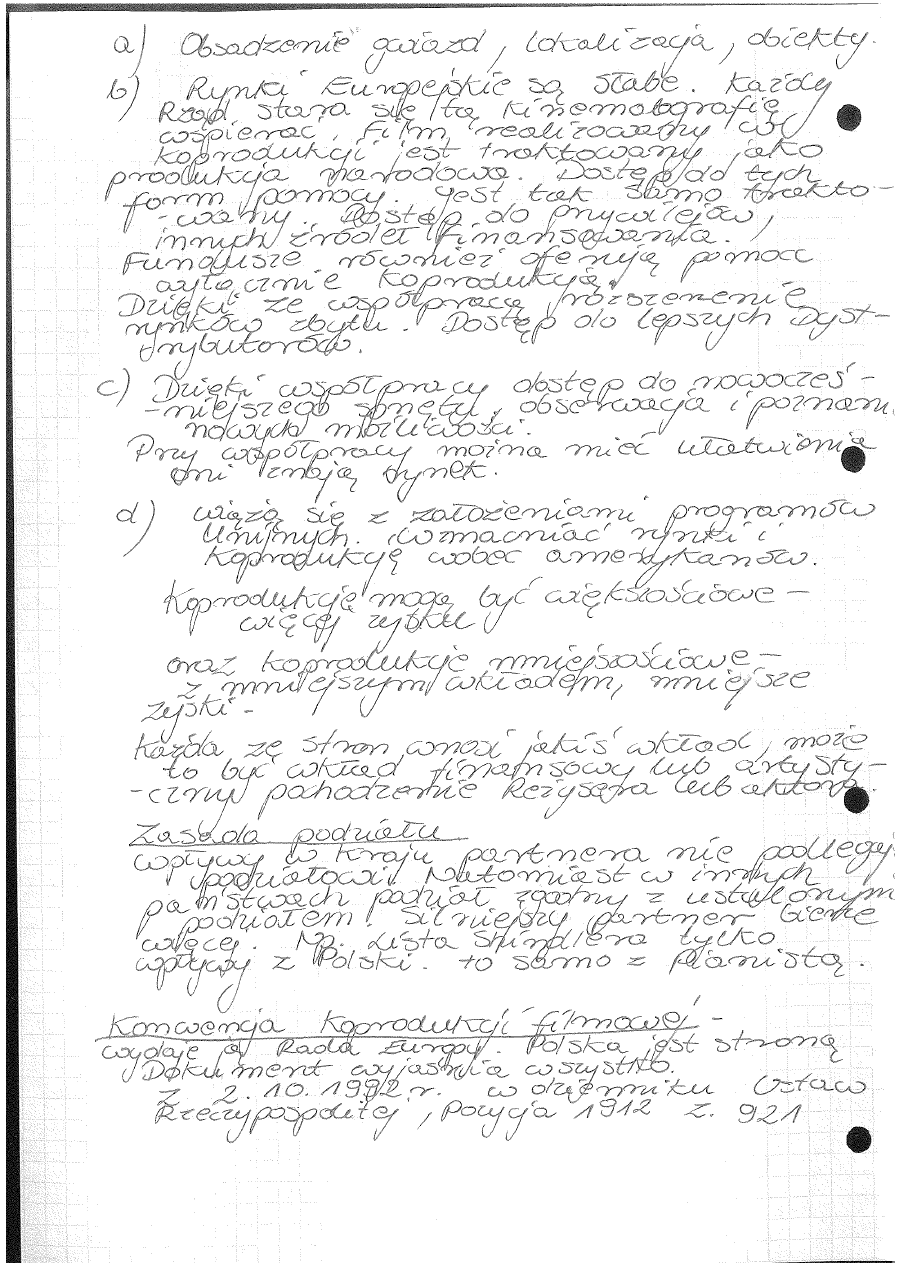 a) Obsadzenie gwiazd, lokalizacja, obiekty.
b) Rynki Europejskie są słabe. Każdy
Rząd stara się tą kinematografię
wspierać. Film realizowany w
koprodukcji jest traktowany jako
produkcja narodowa. Dostęp do tych
form pomocy. jest tak samo trakto-
-wany. Dostęp do przywilejów,
innych źródeł finansowania.
Fundusze również oferują pomoc
wyłącznie koprodukcją.
Dzięki ze współpracą rozszerzenie
rynków zbytu. Dostęp do lepszych Dyst-
trybutorów.
c) Dzięki współpracy dostęp do nowocześ-
-niejszego sprzętu, obserwacja i poznani
nowych możliwości.
Przy współpracy można mieć ułatwienia
oni znają rynek.
d) wiążą się z założeniami programów
Unijnych. Wzmacniać rynki i
koprodukcję wobec amerykanów.
Koprodukcje mogą być większościowe -
więcej zysku
oraz koprodukcje mniejszościowe -
z mniejszym wkładem, mniejsze
zyski -
Każda ze stron wnosi jakiś wkład, może
to być wkład finansowy lub artysty-
-czny pochodzenie Reżysera lub aktora.
Zasada podziału
wpływy w kraju partnera nie podlegaj
podziałowi. Natomiast w innych
państwach podział zgodny z ustalonym
podziałem. Silniejszy partner bierze
więcej. Np. Lista Shindlera tylko
wpływy z Polski. to samo z Pianistą.
Konwencja Koprodukcji filmowej -
wydaje ją Rada Europy. Polska jest stroną
Dokument wyjaśnia wszystko.
Z 2.10.1992 r. w dzienniku Ustaw
Rzeczypospolitej, Pozycja 1912 z. 921